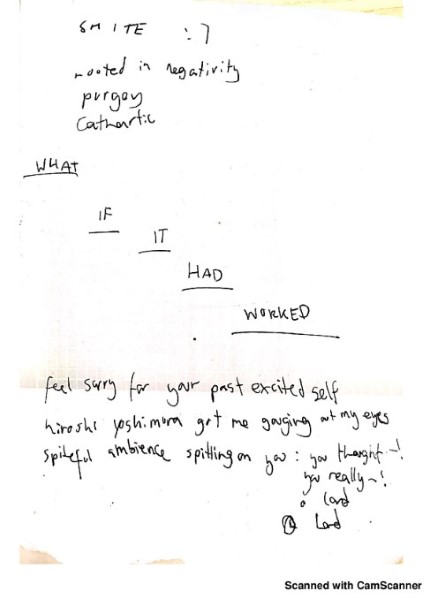 SMITE :7
rooted in negativity
purgey
Cathartic
WHAT
IF
IT
HAD
WORKED
feel sorry for your past excited self
hiroshi yoshimura got me gouging out my eyes
spiteful ambience spitting on you : you thought ~!
you really ~!
o Lord
O Lord
Scanned with CamScanner